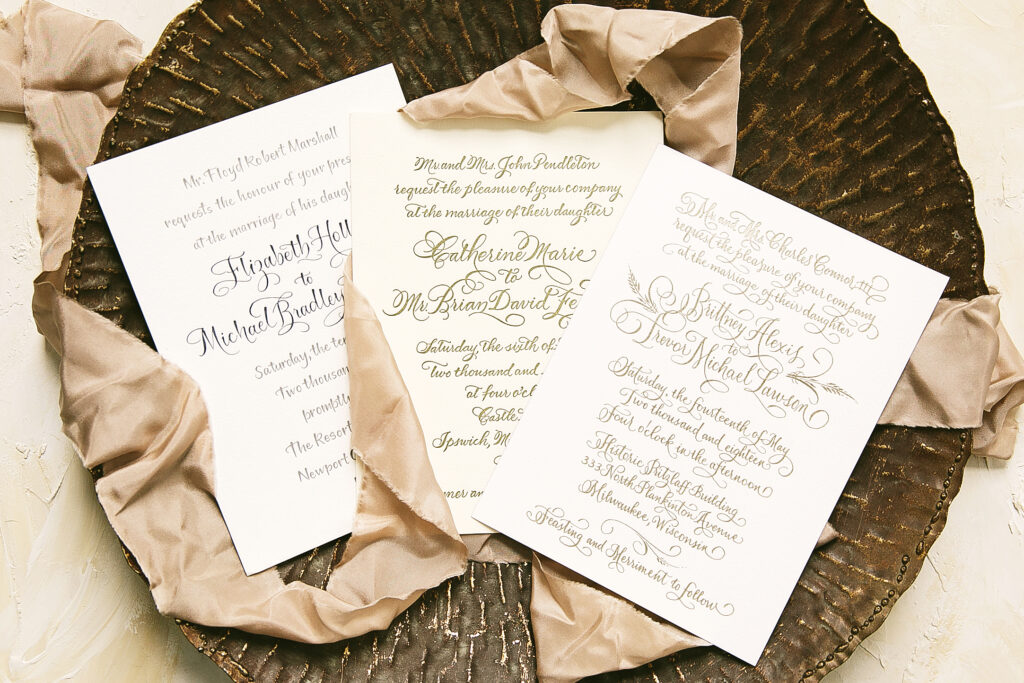 Mr. Floyd Robert Marshall
requests the honour of your
at the marriage of his
Elizabeth
to
Michael Bradley
Saturday, the
Two thousand
The Resort
Newport
Mr. and Mrs. John Pendleton
request the pleasure of your company
at the marriage of their daughter
Catherine Marie
to
Mr. Brian David
Saturday, the sixth of
two thousand and
at four
Castle
Ipswich,
and
Mr. and Mrs. Charles Connor III
request the pleasure of your company
at the marriage of their daughter
Brittney Alexis
to
Trevor Michael Lawson
Saturday the fourteenth of May
Two thousand and eighteen
Four o'clock in the afternoon
Historic Pritzlaff Building
333 North Plankinton Avenue
Milwaukee, Wisconsin
Feasting and Merriment to follow